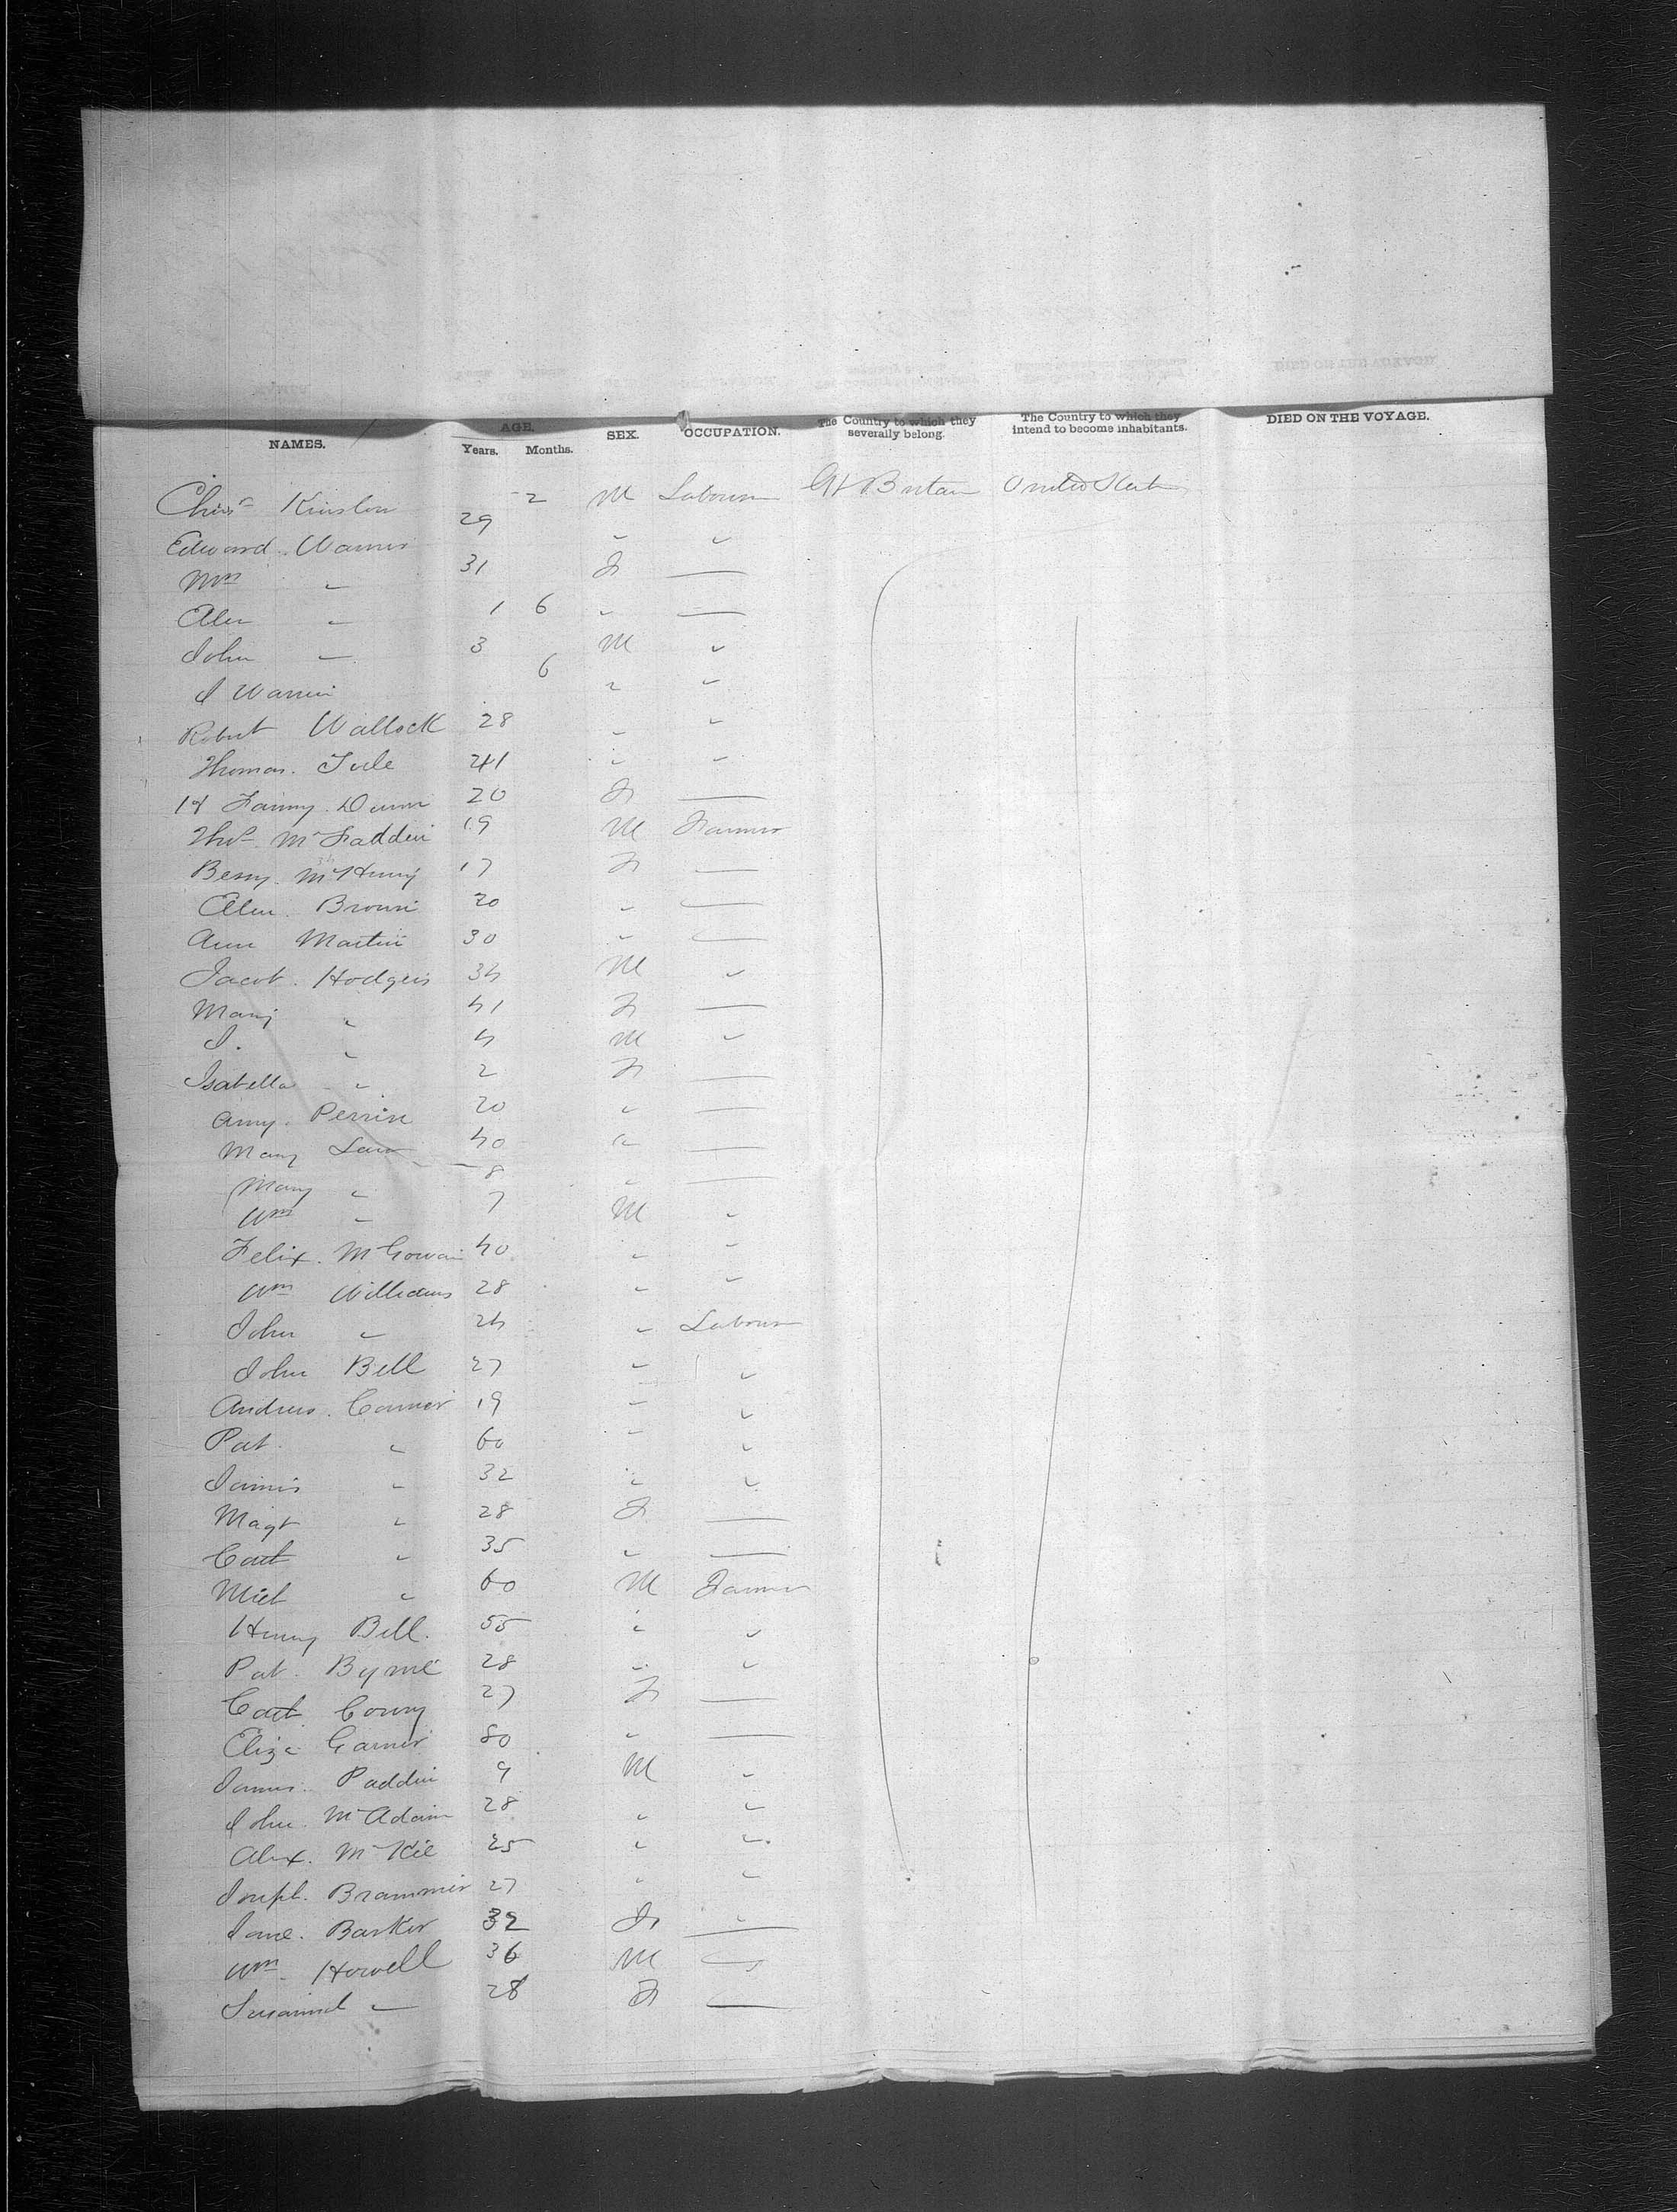 NAMES. AGE. Years. Months. SEX. OCCUPATION. The Country to which they severally belong. The Country to which they intend to become inhabitants. DIED ON THE VOYAGE.
Chrisr 2 M Labourer Gt Britain United States
Edward Warner 29 " "
Mrs " 31 F —
" 1 6 " —
John " 3 M "
J Warner 6 " "
Robert Wallack 28 " "
Thomas 41 " "
Fanny Dunn 20 F —
Thos McFadden 19 M Farmer
Bessy McHenry 17 F —
Ellen Brown 20 " —
Ann Martin 30 " —
Jacob Hodgins 34 M "
Mary " 41 F —
J. " 4 M "
Isabella " 2 F —
Amy Perrin 20 " —
Mary Law 40 " —
Mary " 8 " —
Wm " 7 M "
Felix McGowan 40 " "
Wm Williams 28 " "
John " 24 " Labourer
John Bell 27 " "
Andrew Conner 19 " "
Pat " 60 " "
James " 32 " "
Magt " 28 F —
Cath " 35 " —
Mich " 60 M Farmer
Henry Bell 55 " "
Pat. Byrne 28 " "
Cath 27 F —
Eliza Garner 50 " —
James Paddin 9 M "
John McAdam 28 " "
Alex. McKie 25 " "
Joseph Brammer 27 " "
Jane Barker 32 F —
Wm Howell 36 M "
Susannah " 28 F —